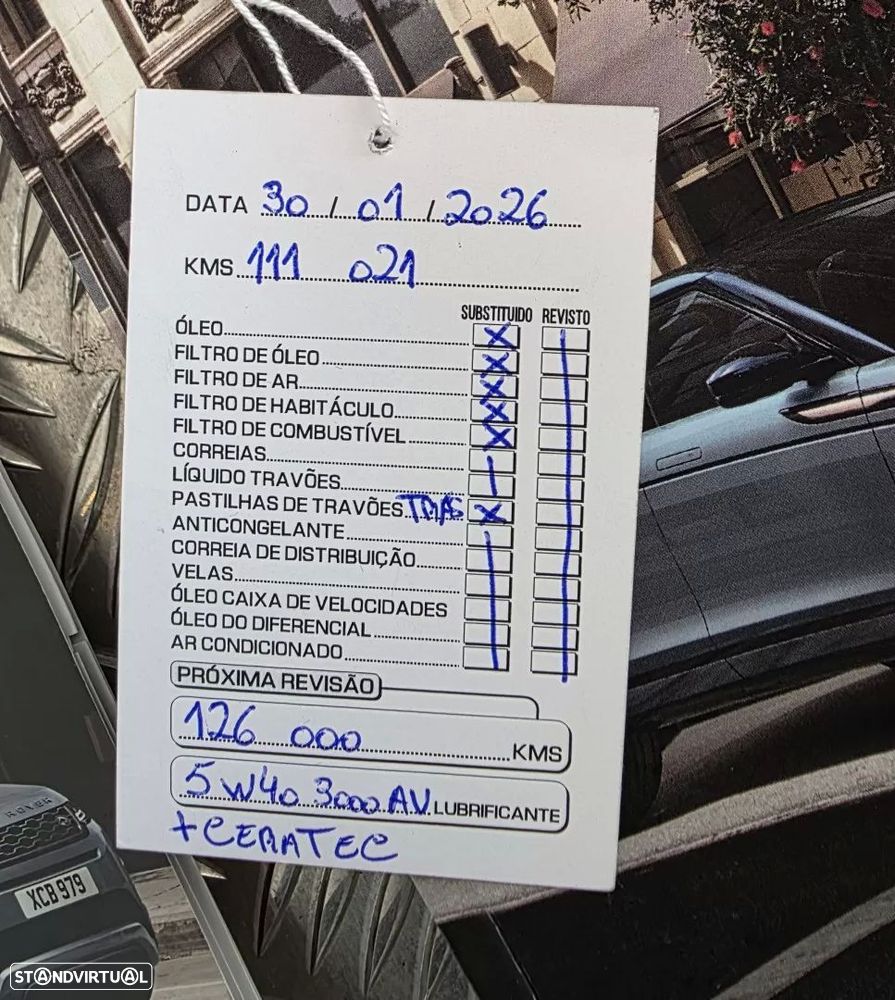 DATA 30 / 01 / 2026
KMS 111 021
SUBSTITUIDO REVISTO
ÓLEO X
FILTRO DE ÓLEO X
FILTRO DE AR X
FILTRO DE HABITÁCULO X
FILTRO DE COMBUSTÍVEL X
CORREIAS
LÍQUIDO TRAVÕES
PASTILHAS DE TRAVÕES X
ANTICONGELANTE
CORREIA DE DISTRIBUIÇÃO
VELAS
ÓLEO CAIXA DE VELOCIDADES
ÓLEO DO DIFERENCIAL
AR CONDICIONADO
PRÓXIMA REVISÃO
126 000 KMS
5W40 3000 AV. LUBRIFICANTE
+ CERATEC
ROVER
XCB 979
STANDVIRTUAL